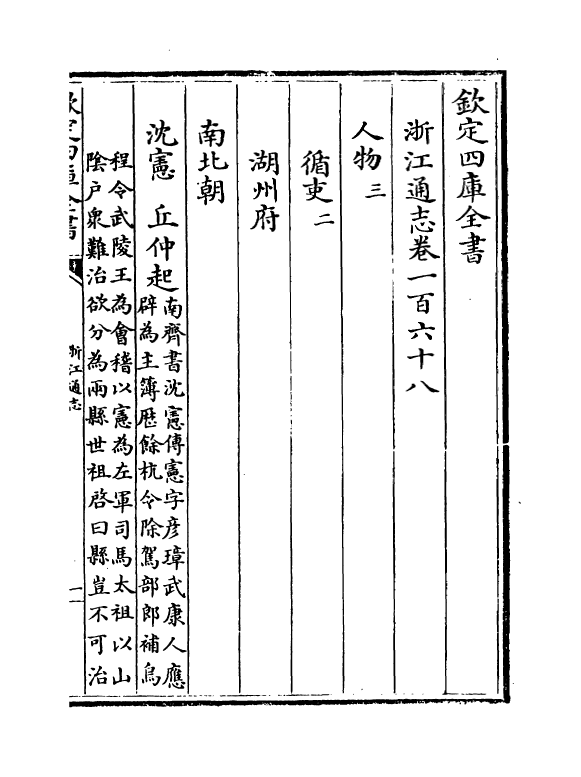 欽定四庫全書
浙江通志卷一百六十八
人物三
循吏二
湖州府
南北朝
沈憲 丘仲起 南齊書沈憲傳憲字彦璋武康人應
辟為主簿歴餘杭令除駕部郎補烏
程令武陵王為會稽以憲為左軍司馬太祖以山
陰戸衆難治欲分為兩縣世祖啓曰縣豈不可治
欽定四庫全書
浙江通志